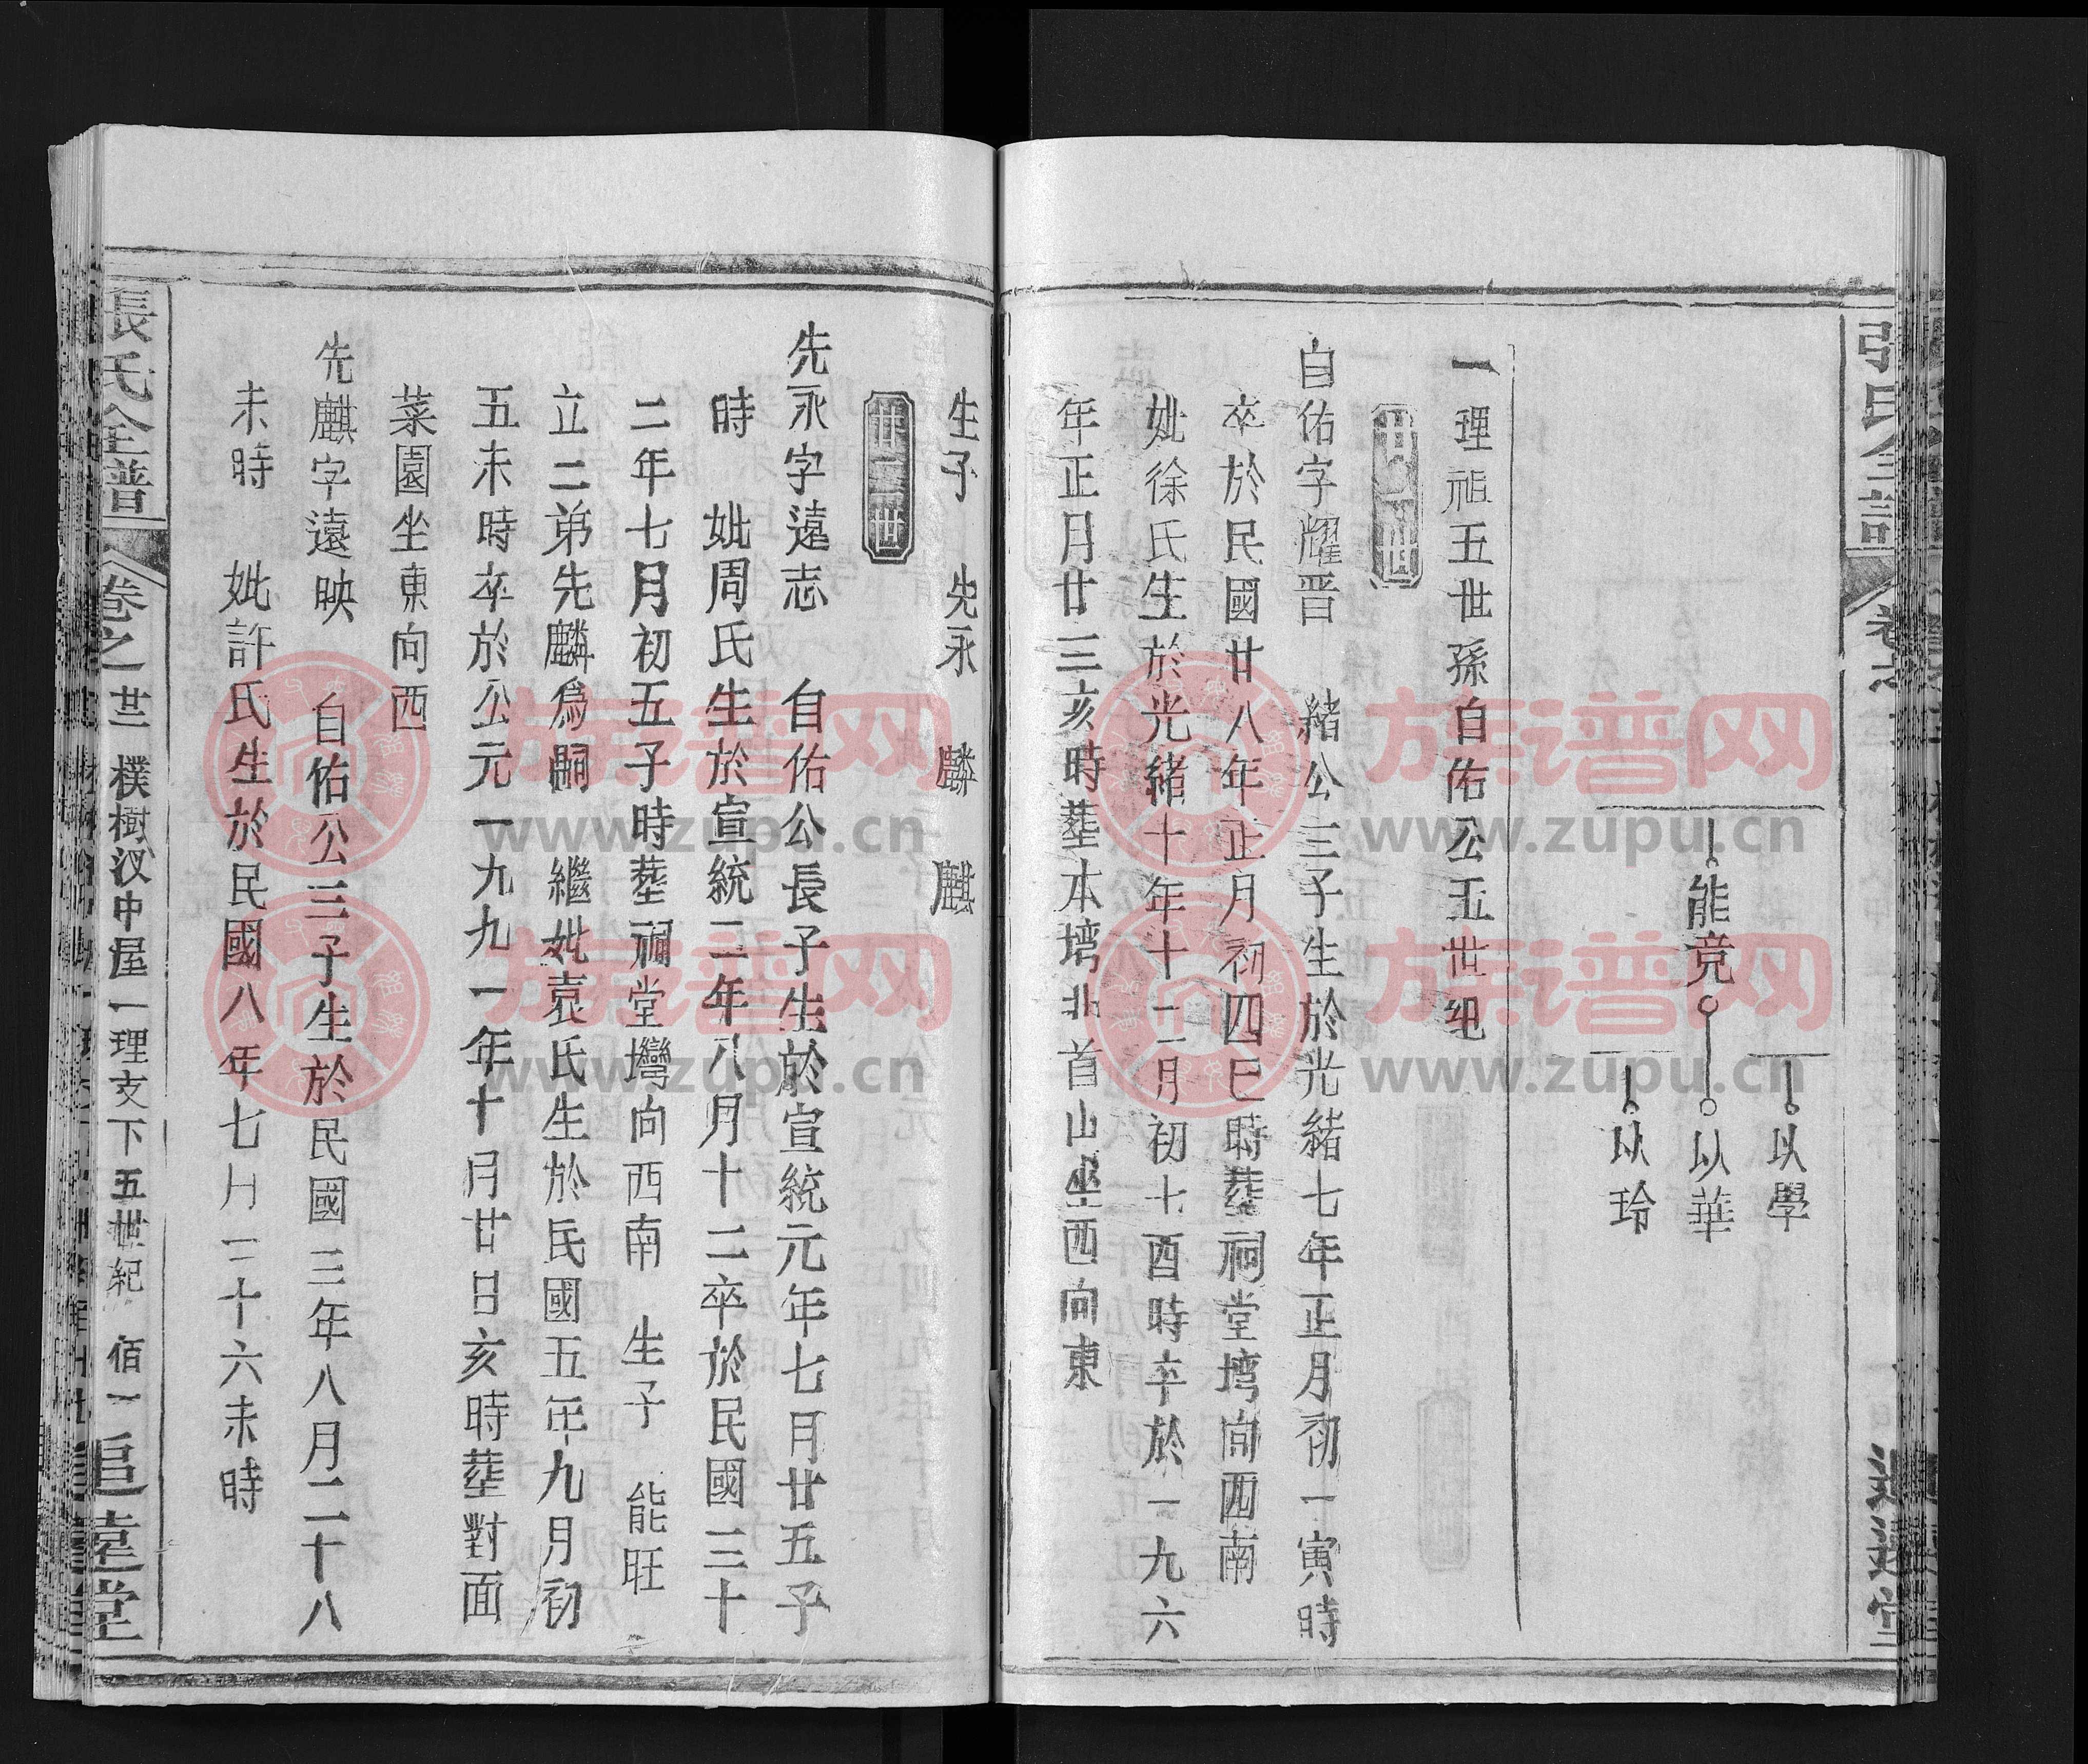 能竞
以學
以華
以玲
一理祖五世孫自佑公五世紀
自佑字耀晋 緒公三子生於光緒七年正月初一寅時
卒於民國廿八年正月初四巳時塟祠堂塆向西南
妣徐氏生於光緒十年十二月初七酉時卒於一九六
年正月廿三亥時塟本塆北首山坐西向東
生子 先永 麟 麒
廿二世
先永字遠志 自佑公長子生於宣統元年七月廿五子
時 妣周氏生於宣統二年八月十二卒於民國三十
二年七月初五子時塟祠堂塆向西南 生子 能旺
立二弟先麟爲嗣 繼妣袁氏生於民國五年九月初
五未時卒於公元一九九一年十月廿日亥時塟對面
菜園坐東向西
先麒字遠映 自佑公三子生於民國三年八月二十八
未時 妣許氏生於民國八年七月二十六未時
張氏全譜 卷之廿二 樸樹汊中屋一理支下五世紀 佰一 追遠堂
族谱网
www.zupu.cn
族谱网
www.zupu.cn
族谱网
www.zupu.cn
族谱网
www.zupu.cn